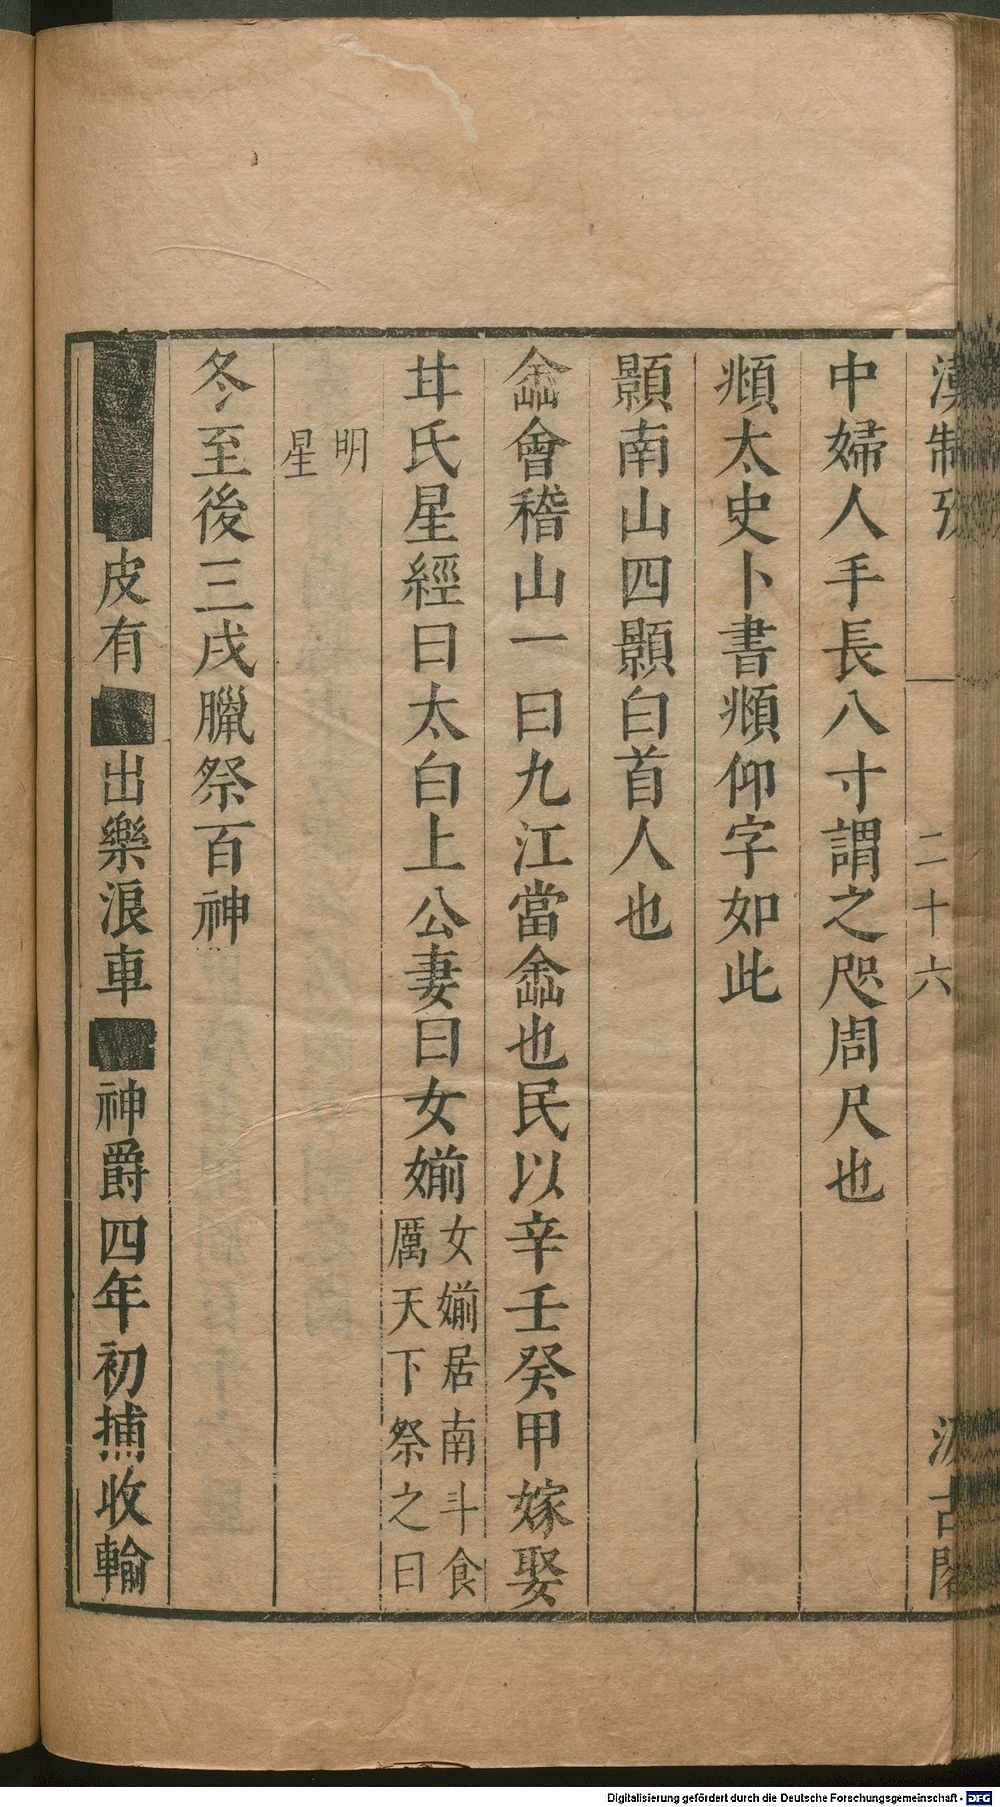 漢制攷 二十六 汲古閣
中婦人手長八寸謂之咫周尺也
頫太史卜書頫仰字如此
顥南山四顥白首人也
嵞會稽山一曰九江當嵞也民以辛壬癸甲嫁娶
甘氏星經曰太白上公妻曰女媊女媊居南斗食厲天下祭之曰
明星
冬至後三戌臘祭百神
皮有 出樂浪車 神爵四年初捕收輸
Digitalisierung gefördert durch die Deutsche Forschungsgemeinschaft - DFG